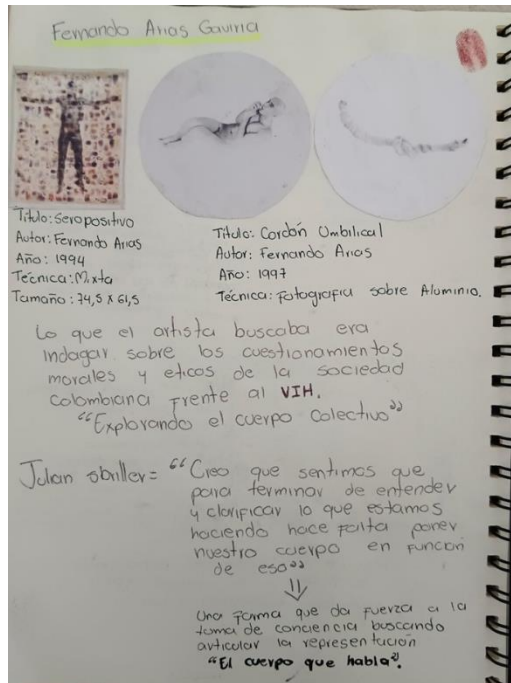 Fernando Arias Gaviria
Titulo: Seropositivo
Autor: Fernando Arias
Año: 1994
Técnica: Mixta
Tamaño: 74,5 x 61,5
Titulo: Cordón Umbilical
Autor: Fernando Arias
Año: 1997
Técnica: Fotografia sobre Aluminio.
Lo que el artista buscaba era
indagar sobre los cuestionamientos
morales y eticos de la sociedad
colombiana frente al VIH.
"Explorando el cuerpo colectivo"
Julian sbriller= "Creo que sentimos que
para terminar de entender
y clarificar lo que estamos
haciendo hace falta poner
nuestro cuerpo en función
de eso"
Una forma que da fuerza a la
toma de conciencia buscando
articular la representación
"El cuerpo que habla".